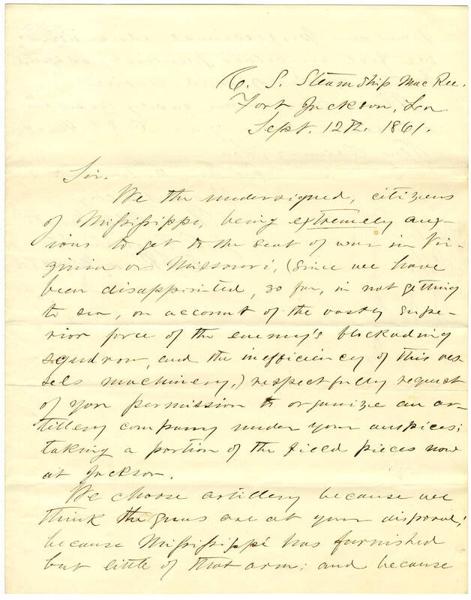 C. S. Steamship MacRee.
Fort Jackson, Lou
Sept. 12th. 1861.
Sir.
We the undersigned, citizens
of Mississippi, being extremely anx-
ious to get to the seat of war in Vir-
ginia or Missouri, (since we have
been disappointed, so far, in not getting
to sea, on account of the vastly supe-
rior force of the enemy's blockading
squadron, and the inefficiency of this ves-
sels machinery,) respectfully request
of you permission to organize an ar-
tillery company under your auspices;
taking a portion of the field pieces now
at Jackson.
We choose artillery because we
think the guns are at your disposal;
because Mississippi has furnished
but little of that arm; and because